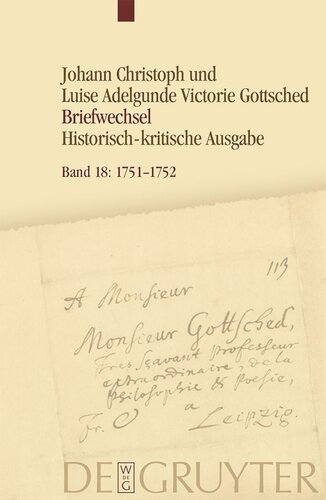 Johann Christoph und
Luise Adelgunde Victorie Gottsched
Briefwechsel
Historisch-kritische Ausgabe
Band 18: 1751–1752
113
A Monsieur
Monsieur Gottsched,
Tres sçavant Professeur
extraordinaire, de la
Philosophie & Poesie,
Fr. a
Leipzig.
DE GRUYTER
W
DE
G